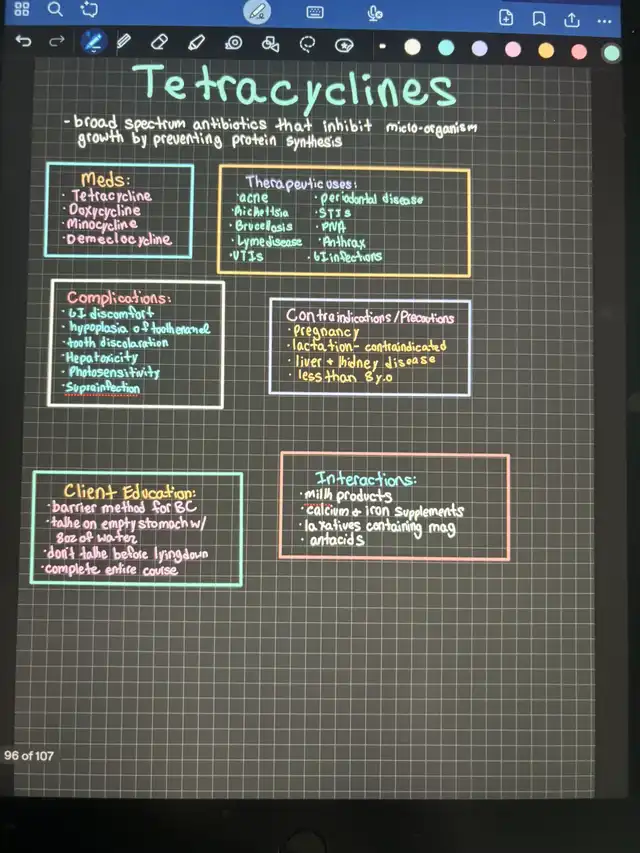 Tetracyclines
- broad spectrum antibiotics that inhibit micro-organism
growth by preventing protein synthesis
Meds:
· Tetracycline
· Doxycycline
· Minocycline
· Demeclocycline
Therapeutic uses:
· acne
· Rickettsia
· Brucellosis
· Lyme disease
· UTIs
· periodontal disease
· STIs
· PNA
· Anthrax
· GI infections
Complications:
· GI discomfort
· hypoplasia of tooth enamel
· tooth discoloration
· Hepatoxicity
· Photosensitivity
· Suprainfection
Contraindications/Precautions
· pregnancy
· lactation - contraindicated
· liver + kidney disease
· less than 8 y.o
Client Education:
· barrier method for BC
· take on empty stomach w/
8oz of water
· don't take before lying down
· complete entire course
Interactions:
· milk products
· calcium + iron supplements
· laxatives containing mag
· antacids
96 of 107